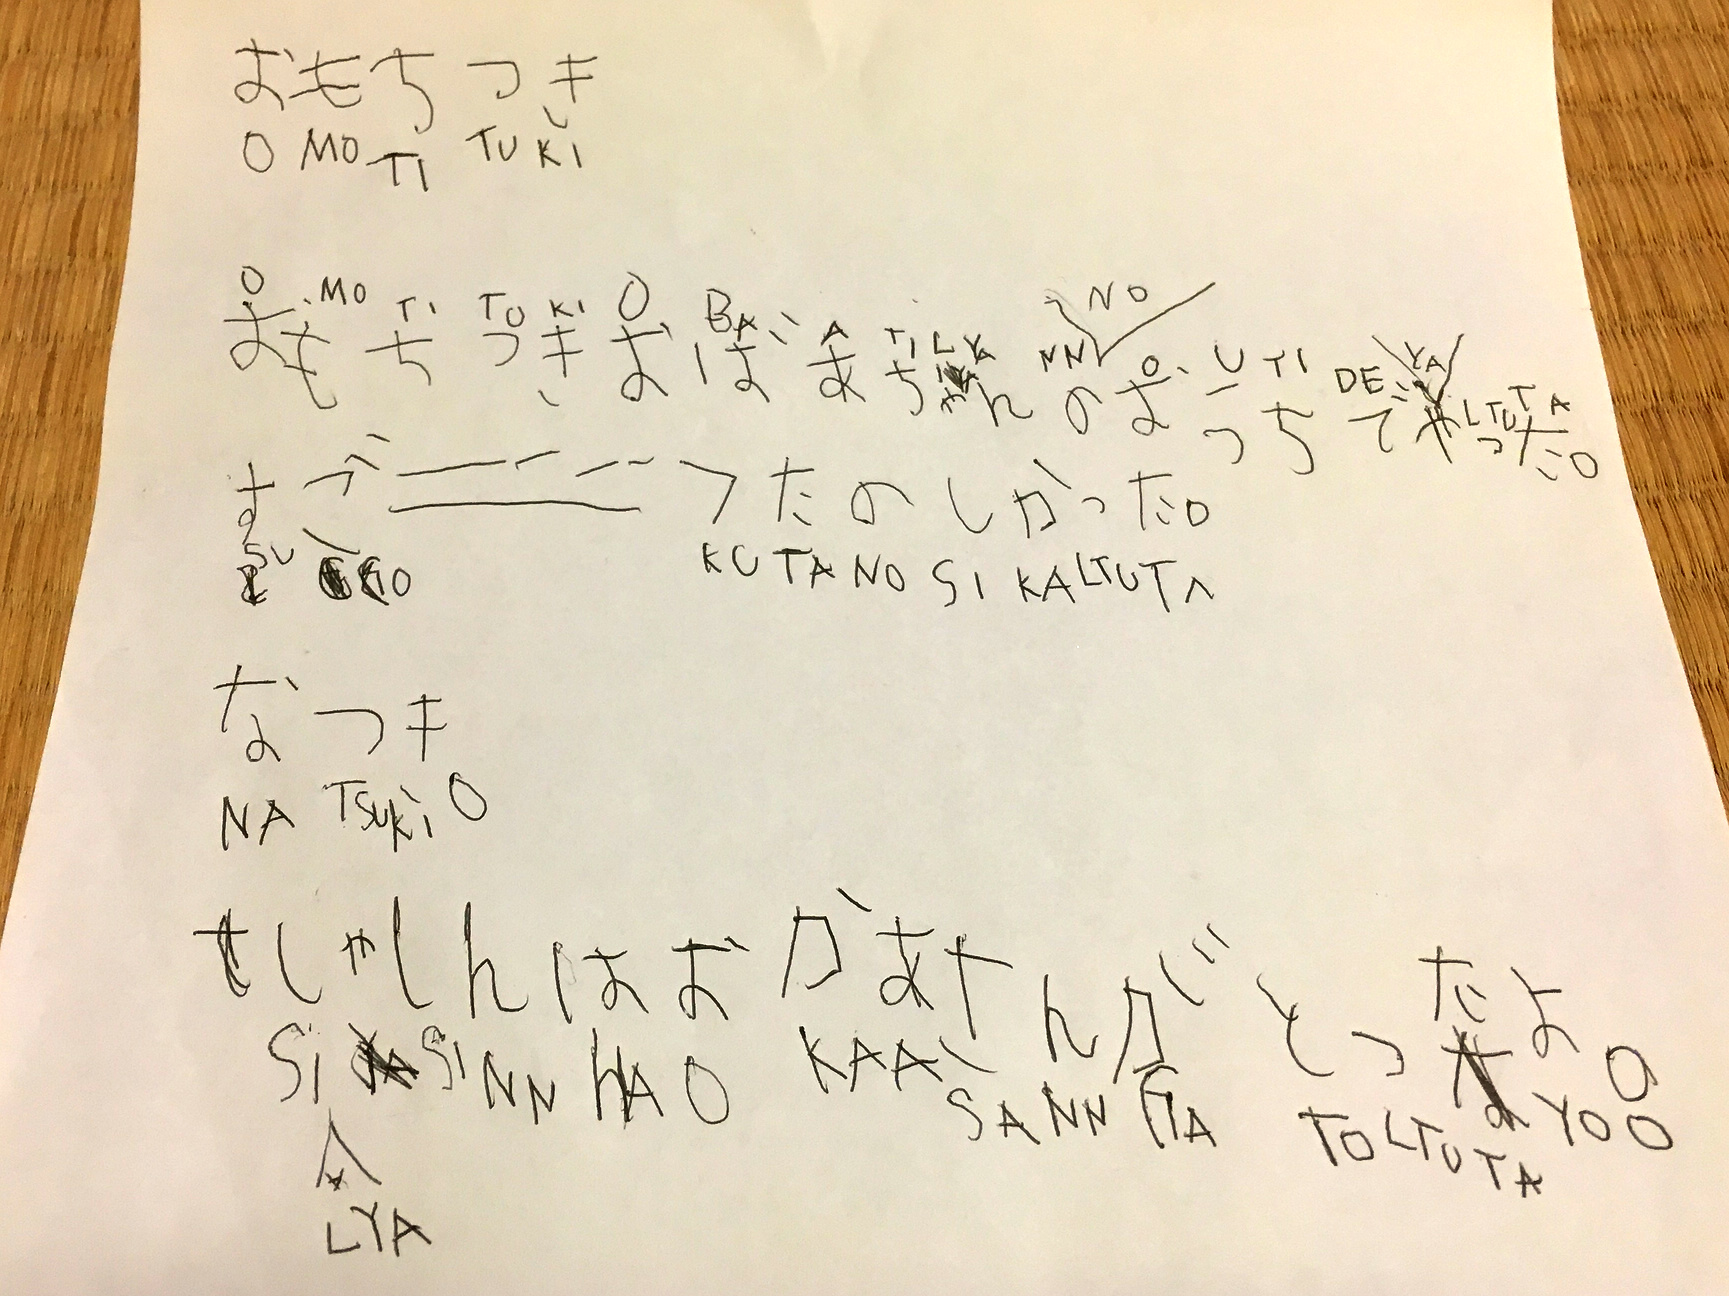 おもちつき
O MO TI TU KI
O MO TI TU KI O BA A TI LYA NN NO O U TI DE YA LTU TA
おもちつきおばあちゃんのおうちでやった。
すご――――くたのしかった。
SU GO KU TA NO SI KA LTU TA
なつき
NA TSUKi O
しゃしんはおかあさんがとったよ。
Si SI NN HA O KAA SA NN GA TO LTU TA YO O
LYA